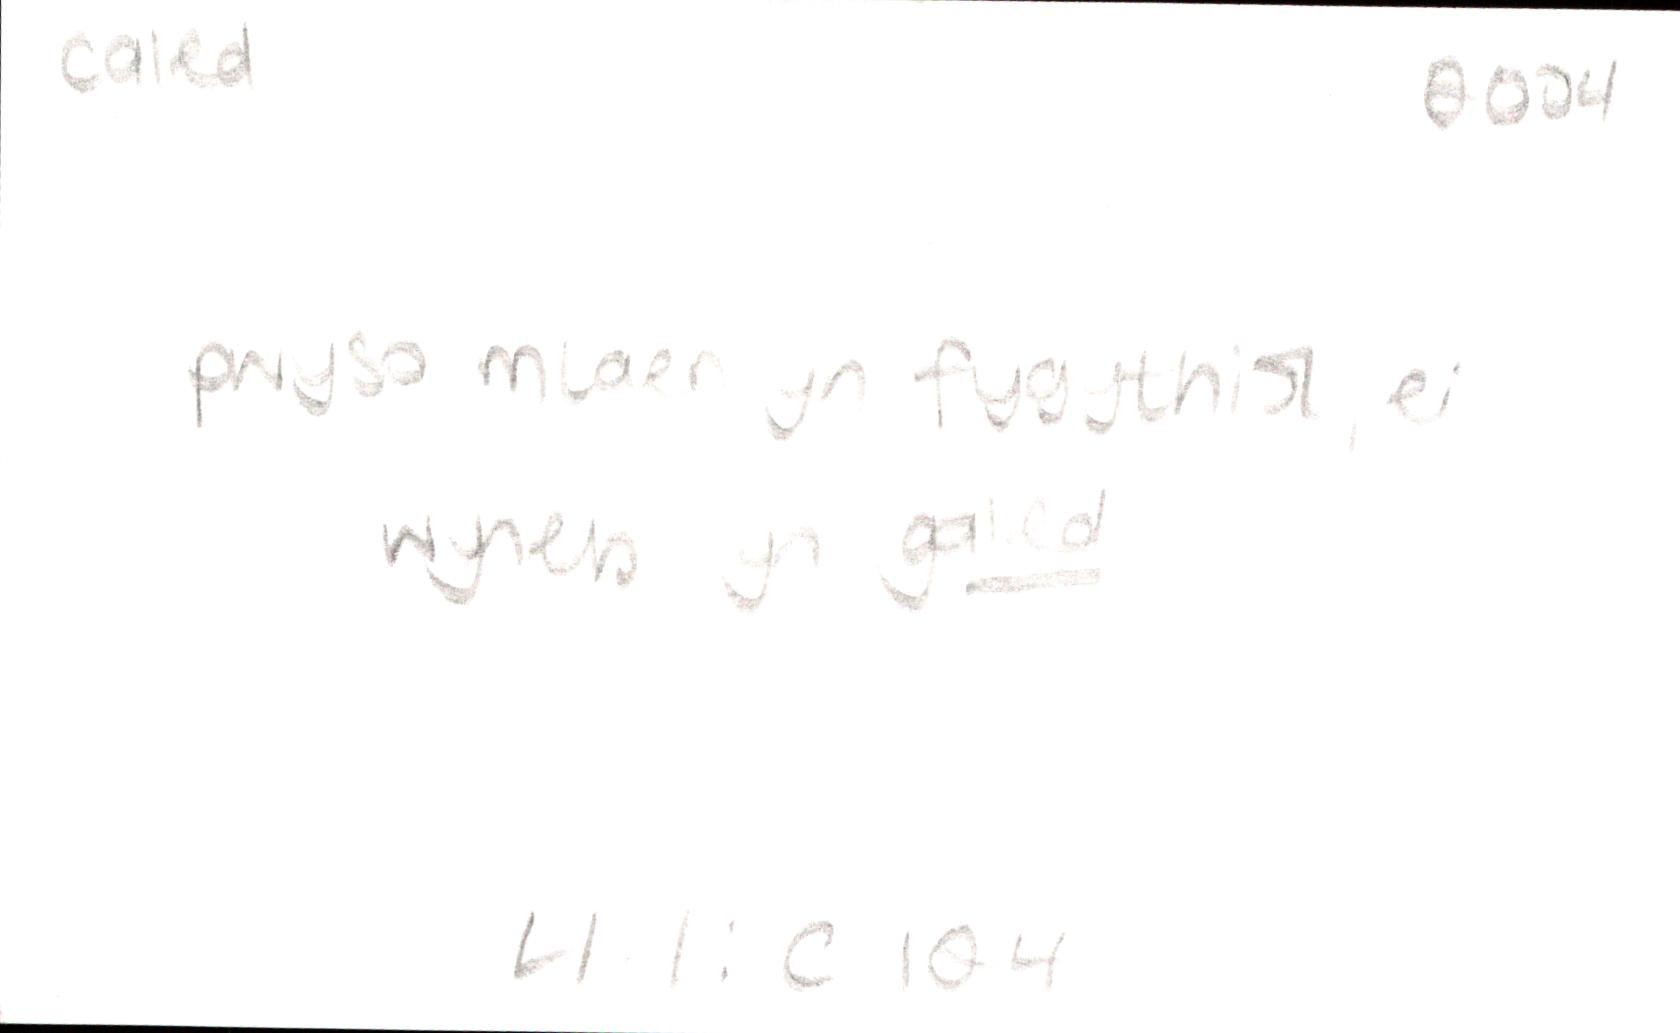 caled
pwyso mlaen yn fygythiol, ei
wyneb yn galed
Ll 1: C 104